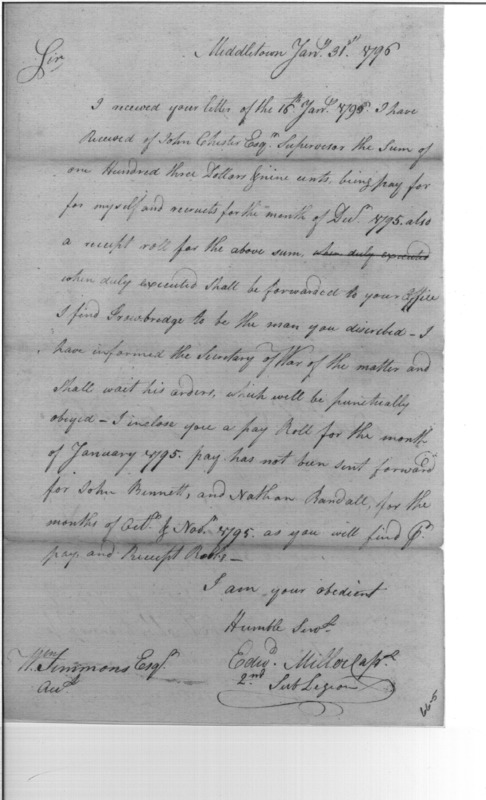 Middletown Jany. 31st. 1796
Sir
I received your letter of the 15th Jany. 1796. I have
Received of John Chester Esqr. Supervisor the Sum of
one Hundred three Dollars & nine cents, being pay for
for myself and recruits for the month of Decr. 1795. also
a receipt roll for the above sum, when duly executed
when duly executed Shall be forwarded to your Office
I find Trowbridge to be the man you discribed – I
have informed the Secretary of War of the matter and
Shall wait his orders, which will be punctually
obeyed – I inclose you a pay Roll for the month
of January 1795. pay has not been sent forward
for John Bennett, and Nathan Randall, for the
months of Octr. & Novr. 1795. as you will find Pr.
pay. and Receipt Rolls –
I am your obedient
Humble Servt.
Wm Simmons Esqr.
Edwd. Miller Capt.
2nd Sub Legion